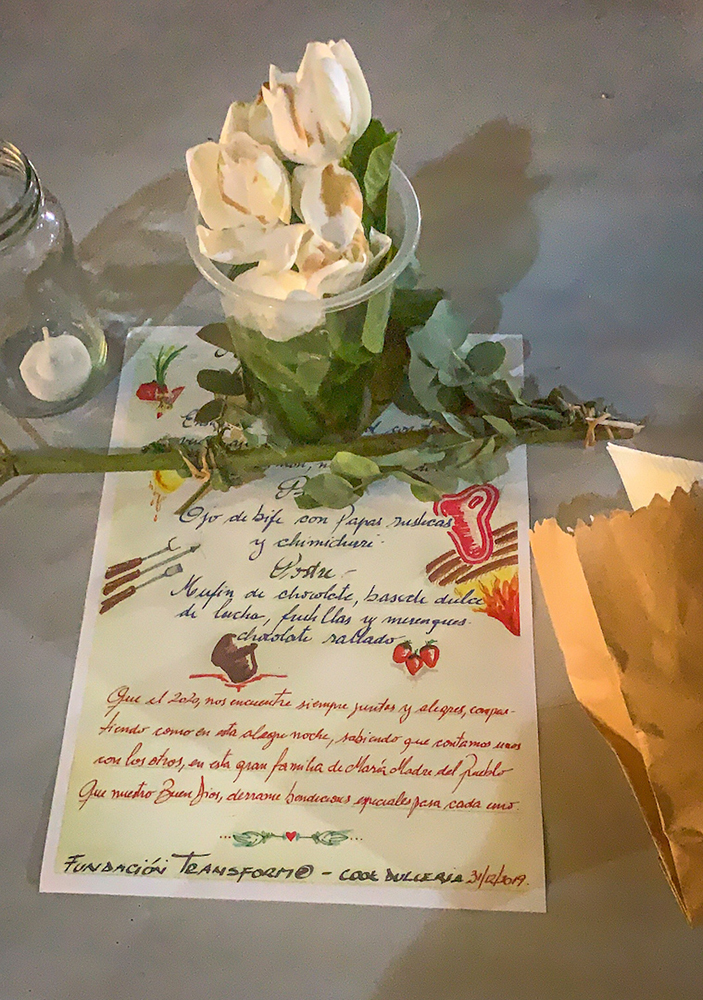 Ojo de bife con Papas rusticas
y chimichuri.
Postre -
Mufin de chocolate, base de dulce
de leche, frutillas y merengues
chocolate rallado
Que el 2020, nos encuentre siempre juntos y alegres, compar-
tiendo como en esta alegre noche, sabiendo que contamos unos
con los otros, en esta gran familia de María Madre del Pueblo
Que nuestro Buen Dios, derrame bendiciones especiales para cada uno.
FUNDACIÓN TRANSFORM@ - COOK DULCERIA 31/12/2019.